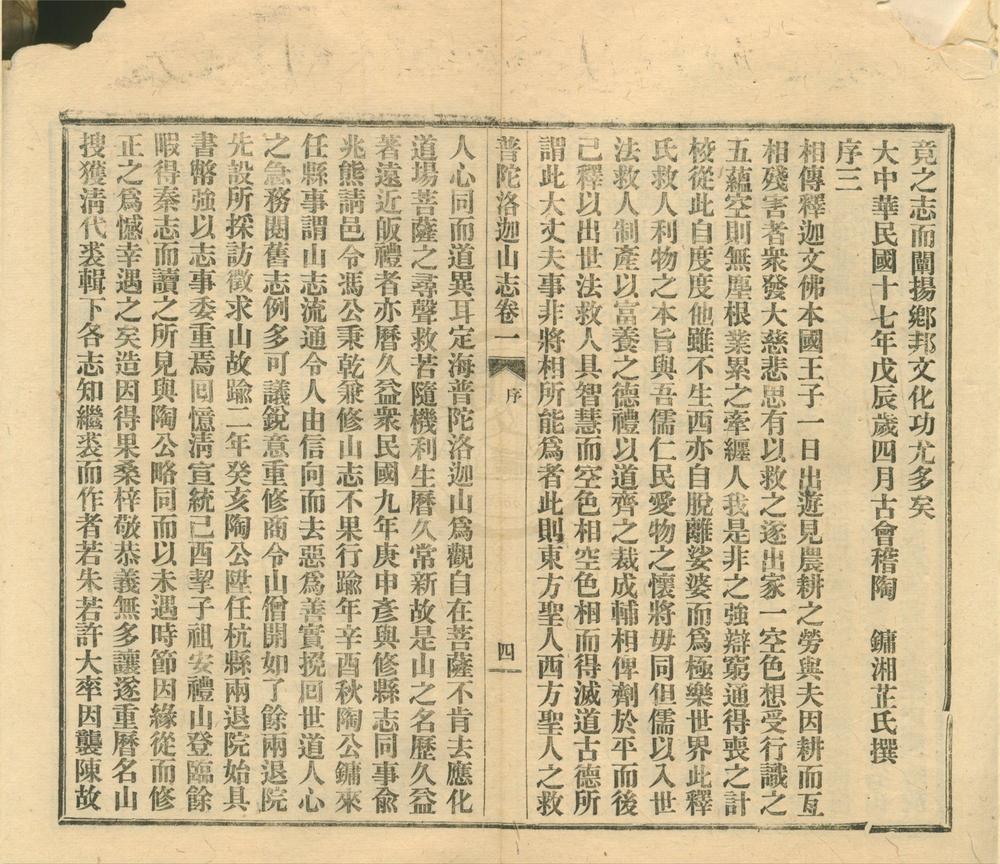 竟之志而闡揚鄉邦文化功尤多矣
大中華民國十七年戊辰歲四月古會稽陶　鏞湘芷氏撰
序三
相傳釋迦文佛本國王子一日出遊見農耕之勞與夫因耕而互
相殘害者衆發大慈悲思有以救之遂出家一空色想受行識之
五蘊空則無塵根業累之牽纏人我是非之強辯窮通得喪之計
校從此自度度他雖不生西亦自脫離娑婆而爲極樂世界此釋
氏救人利物之本旨與吾儒仁民愛物之懷將毋同但儒以入世
法救人制產以富養之德禮以道齊之裁成輔相俾劑於平而後
己釋以出世法救人具智慧而空色相空色相而得滅道古德所
謂此大丈夫事非將相所能爲者此則東方聖人西方聖人之救
普陀洛迦山志卷一　序　四
人心同而道異耳定海普陀洛迦山爲觀自在菩薩不肯去應化
道場菩薩之尋聲救苦隨機利生曆久常新故是山之名歷久益
著遠近皈禮者亦曆久益衆民國九年庚申彥與修縣志同事兪
兆熊請邑令馮公秉乾兼修山志不果行踰年辛酉秋陶公鏞來
任縣事謂山志流通令人由信向而去惡爲善實挽回世道人心
之急務閱舊志例多可議銳意重修商令山僧開如了餘兩退院
先設所採訪徵求山故踰二年癸亥陶公陞任杭縣兩退院始具
書幣強以志事委重焉回憶清宣統己酉挈子祖安禮山登臨餘
暇得秦志而讀之所見與陶公略同而以未遇時節因緣從而修
正之爲憾幸遇之矣造因得果桑梓敬恭義無多讓遂重曆名山
搜獲清代裘輯下各志知繼裘而作者若朱若許大率因襲陳故